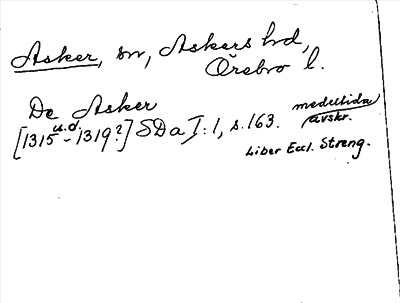 Asker, sn, Askers hd,
Örebro l.
De Asker
[1315 u.d. - 1319?] SDa I:1, s. 163. medeltida avskr.
Liber Eccl. Streng.